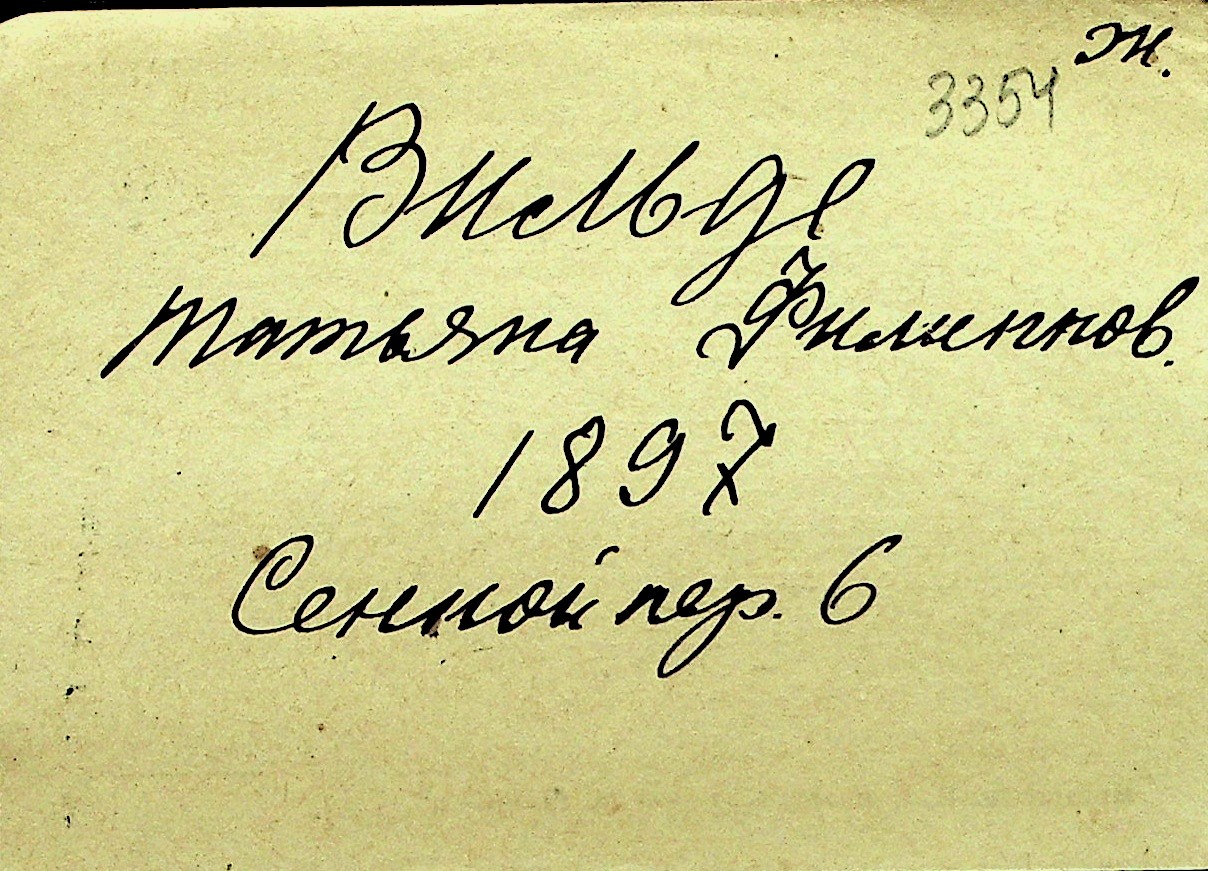 ж.
3354
Вильде
Татьяна Филиппов.
1897
Сенной пер. 6